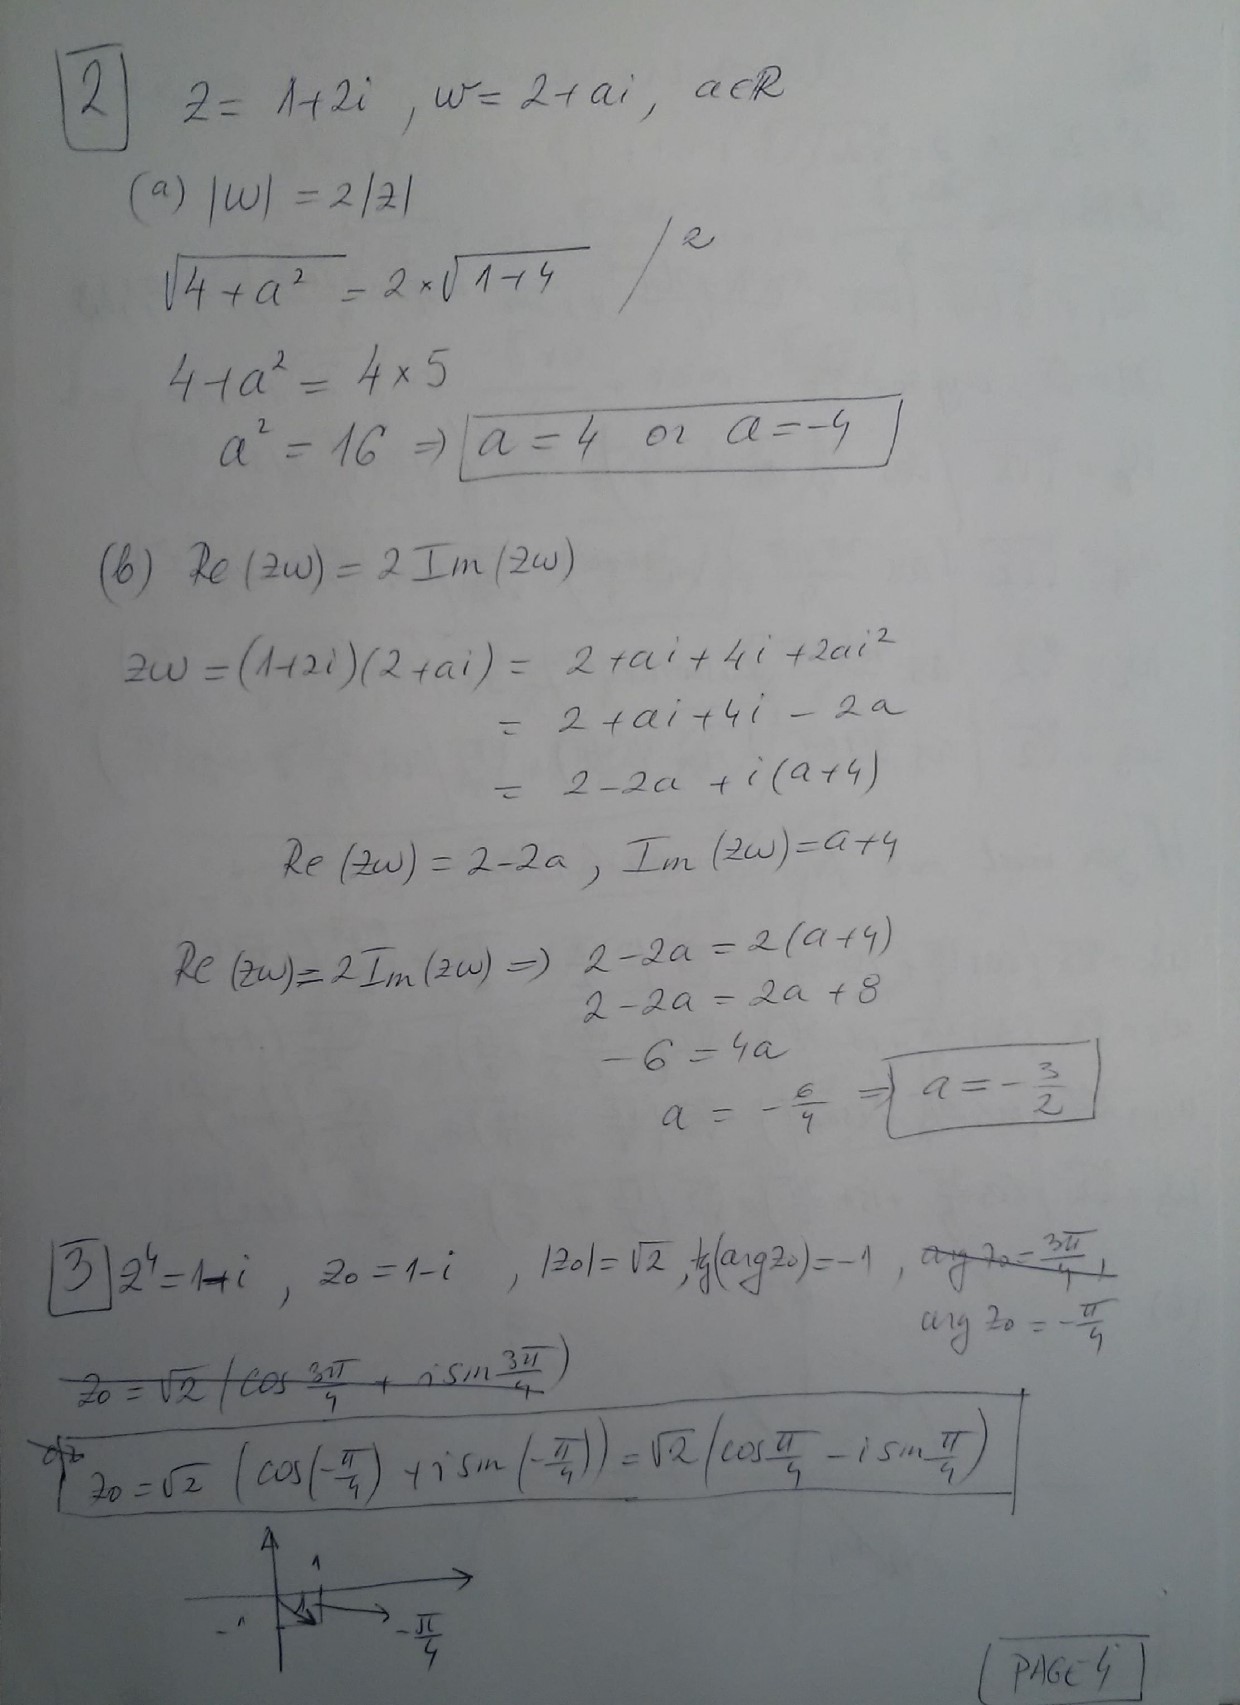 2 z = 1+2i , w = 2+ai, a∈R
(a) |w| = 2|z|
√(4+a²) = 2×√(1+4) /²
4+a² = 4×5
a² = 16 ⇒ a = 4 or a = -4
(b) Re(zw) = 2 Im(zw)
zw = (1+2i)(2+ai) = 2+ai+4i+2ai²
= 2+ai+4i-2a
= 2-2a + i(a+4)
Re(zw) = 2-2a , Im(zw) = a+4
Re(zw) = 2Im(zw) ⇒ 2-2a = 2(a+4)
2-2a = 2a+8
-6 = 4a
a = -6/4 ⇒ a = -3/2
3 z⁴ = 1-i , z₀ = 1-i , |z₀| = √2 , tg(arg z₀) = -1 , arg z₀ = 3π/4 ,
arg z₀ = -π/4
z₀ = √2 (cos 3π/4 + i sin 3π/4)
z₀ = √2 (cos(-π/4) + i sin(-π/4)) = √2 (cos π/4 - i sin π/4)
1
-1
-π/4
PAGE 4